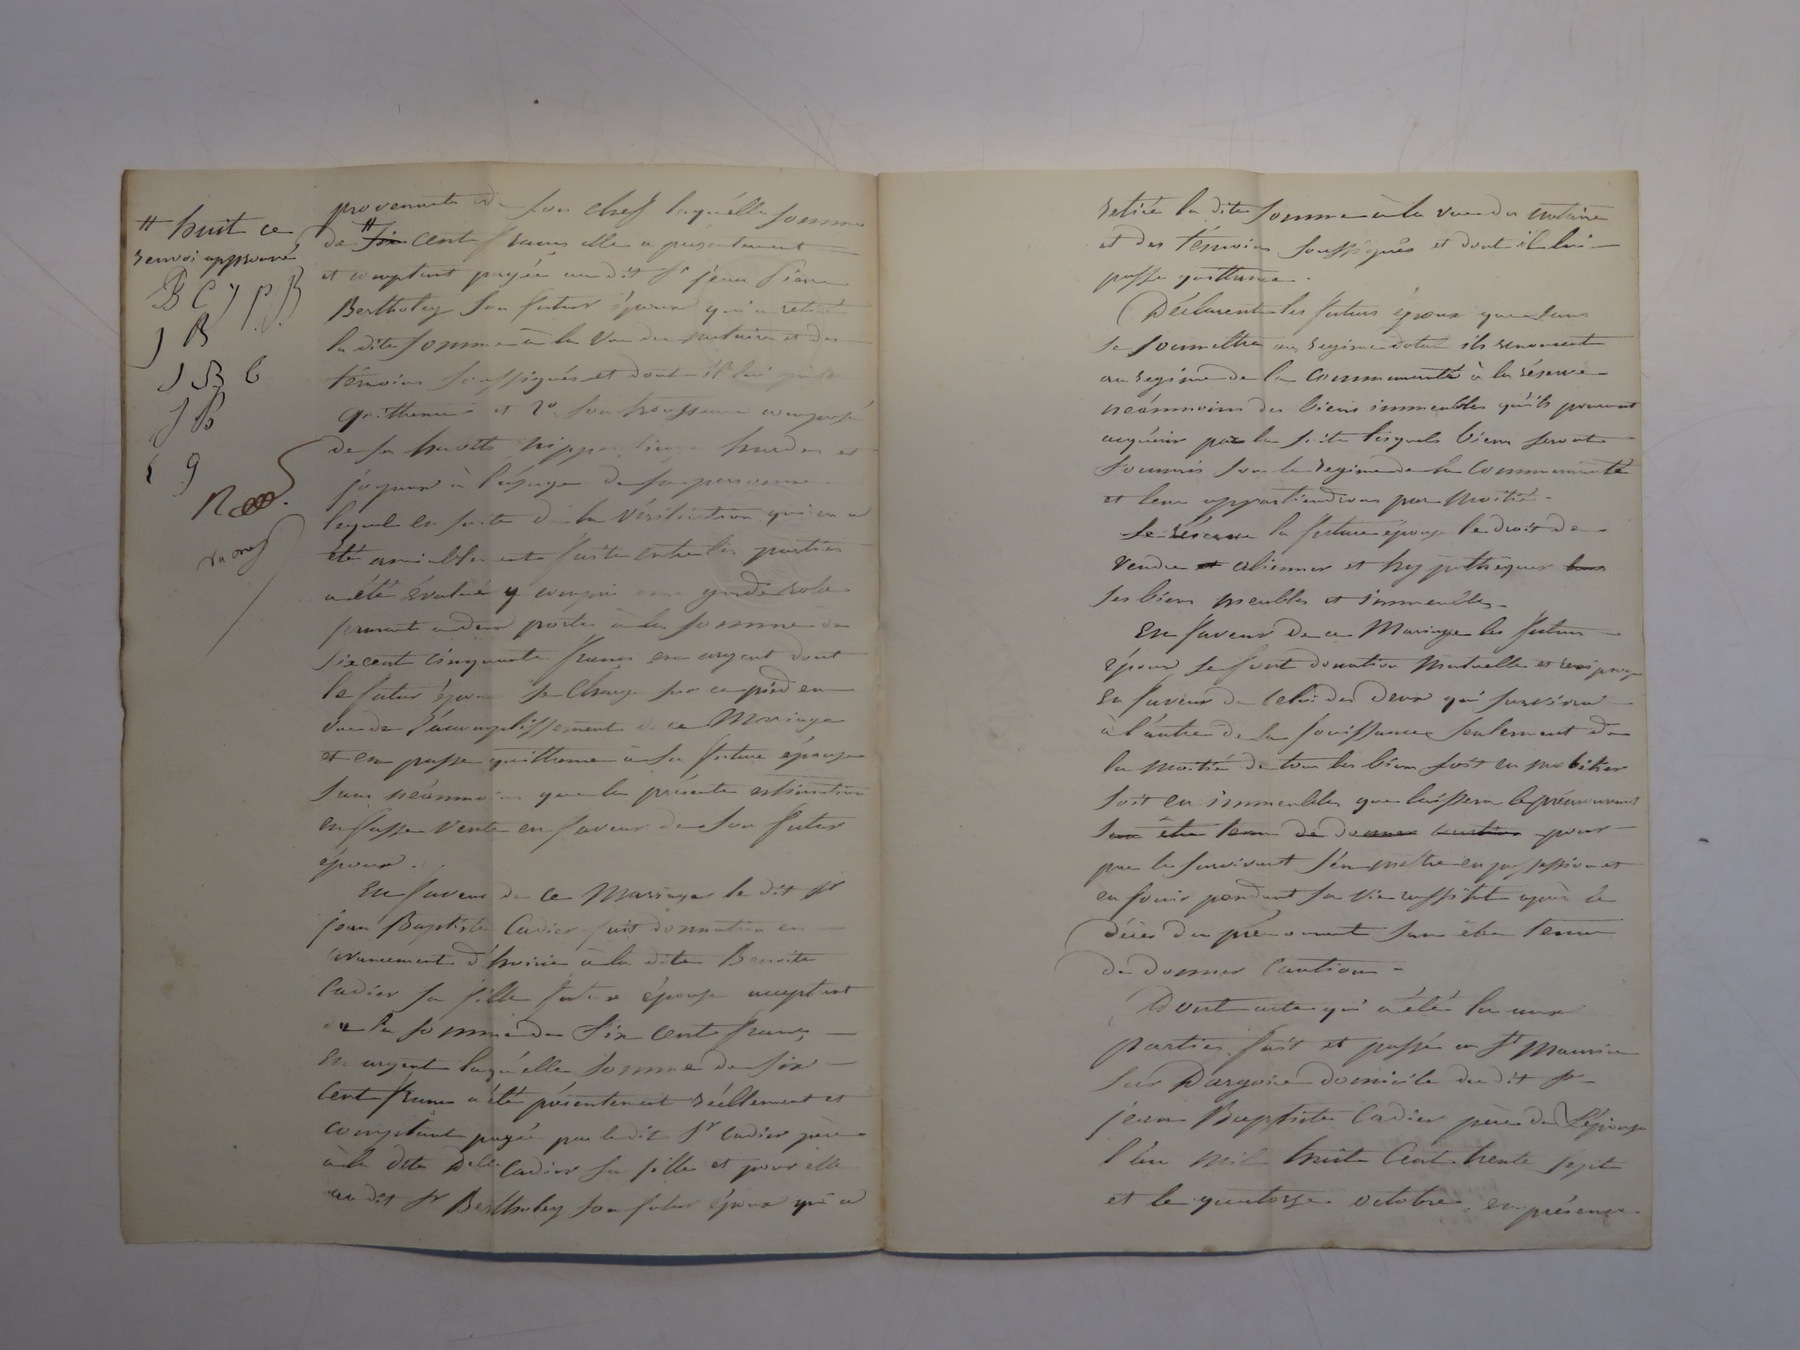 # huit ce
renvoi approuvé
B C J P B
J B
J B C
J B
C G
provenants de son chef laquélle somme
de # six cent francs elle a présentement
et comptant payée au dit Sr jean Piere
Bertholey son futur époux qui a retiré
la dite somme à la vue du notaire et des
témoins soussignés et dont il lui passe
quittance et 2o son trousseau composé
de sa garde nippes linge hardes et
joyaux à l'usage de sa personne
lequel en suite de la vérification qui en a
été amiablement faite entre les parties
a été évalué y compris une garderobe
fermant à deux portes à la somme de
six cent cinquante francs en argent dont
le futur époux se charge sur ce pied en
vue de l'accomplissement de ce Mariage
et en passe quittance à sa future épouse
sans néanmoins que la présente estimation
en fasse vente en faveur de son futur
époux.
En faveur de ce Mariage le dit Sr
jean Baptiste Cadier fait donnation en
avancement d'hoirie à la dite Benoite
Cadier sa fille future épouse acceptant
de la somme de six cent francs
en argent laquélle somme de six
cent francs a été présentement réellement et
comptant payée par le dit Sr Cadier père
à la dite Delle Cadier sa fille et pour elle
au dit Sr Bertholey son futur époux qui a
retiré la dite somme à la vue du notaire
et des témoins soussignés et dont il lui
passe quittance.
Déclarent les futurs époux que sans
se soumettre au regime dotal ils renoncent
au regime de la communauté à la réserve
néanmoins des biens immeubles qu'ils pourront
acquérir par la suite lesquels biens seront
soumis sou le regime de la communauté
et leur appartiendront par moitié.
Se réserve la future épouse le droit de
vendre et alienner et hypothequer tous
ses biens meubles et immeubles.
En faveur de ce Mariage les futurs
époux se font donation mutuelle et reciproque
en faveur de celui des deux qui survivra
à l'autre de la jouissance seulement de
la moitié de tous les biens soit en mobilier
soit en immeubles que laissera le prémourant
sans être tenu de donner caution pour
par le survivant s'en mettre en possession et
en jouir pendant sa vie aussitot après le
décès du prémourant sans être tenu
de donner caution.
Dont acte qui a été lu aux
parties fait et passé en St Maurice
sur Dargoire domicile du dit Sr
jean Baptiste Cadier père de L'épouse
l'an mil huit cent trente sept
et le quatorze octobre en présence